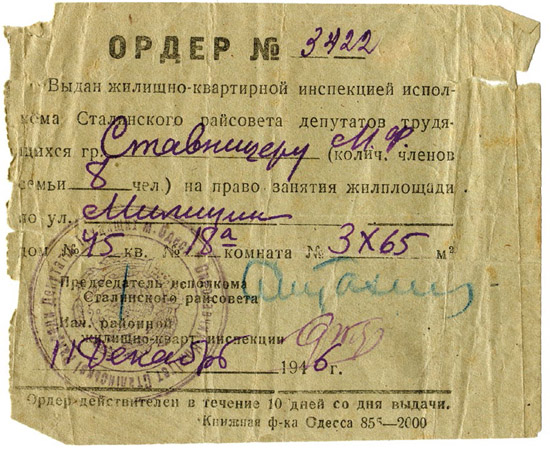 ОРДЕР № 3422
Выдан жилищно-квартирной инспекцией испол-
кома Сталинского райсовета депутатов трудя-
щихся гр. Ставницеру М.Ф. (колич. членов
семьи 8 чел.) на право занятия жилплощади
по ул. Милиции
дом № 45 кв. № 18а комната № 3х65 м²
Председатель исполкома
Сталинского райсовета
Нач. районной
жилищно-кварт. инспекции
11 Декабрь 1946 г.
Ордер действителен в течение 10 дней со дня выдачи.
Книжная ф-ка Одесса 85 —2000